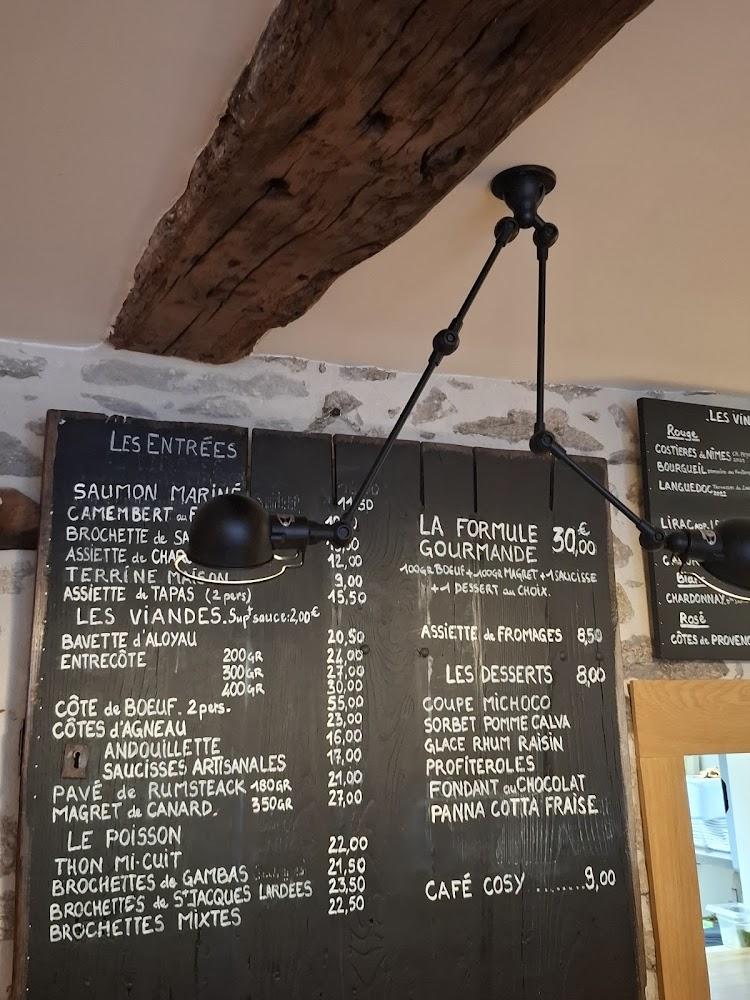 LES ENTRÉES
SAUMON MARINÉ
11,50
CAMEMBERT au
BROCHETTE de
ASSIETTE de
12,00
TERRINE MAISON
9,00
ASSIETTE de TAPAS (2 pers)
15,50
LES VIANDES. Supt sauce: 2,00€
BAVETTE d'ALOYAU
20,50
ENTRECÔTE
200GR
24,00
300GR
27,00
400GR
30,00
CÔTE de BOEUF. 2 pers.
55,00
CÔTES d'AGNEAU
23,00
ANDOUILLETTE
16,00
SAUCISSES ARTISANALES
17,00
PAVÉ de RUMSTEACK 180GR
21,00
MAGRET de CANARD. 350GR
27,00
LE POISSON
THON MI-CUIT
22,00
BROCHETTES de GAMBAS
21,50
BROCHETTES de ST JACQUES LARDÉES
23,50
BROCHETTES MIXTES
22,50
LA FORMULE
GOURMANDE
30,00€
100GR BOEUF + 100GR MAGRET + 1 SAUCISSE
+ 1 DESSERT au CHOIX.
ASSIETTE de FROMAGES 8,50
LES DESSERTS 8,00
COUPE MICHOCO
SORBET POMME CALVA
GLACE RHUM RAISIN
PROFITEROLES
FONDANT au CHOCOLAT
PANNA COTTA FRAISE
CAFÉ COSY ........9,00
LES VIN
Rouge
COSTIERES de NÎMES
BOURGUEIL
LANGUEDOC
LIRAC
CHARDONNAY
Rosé
CÔTES de PROVENC